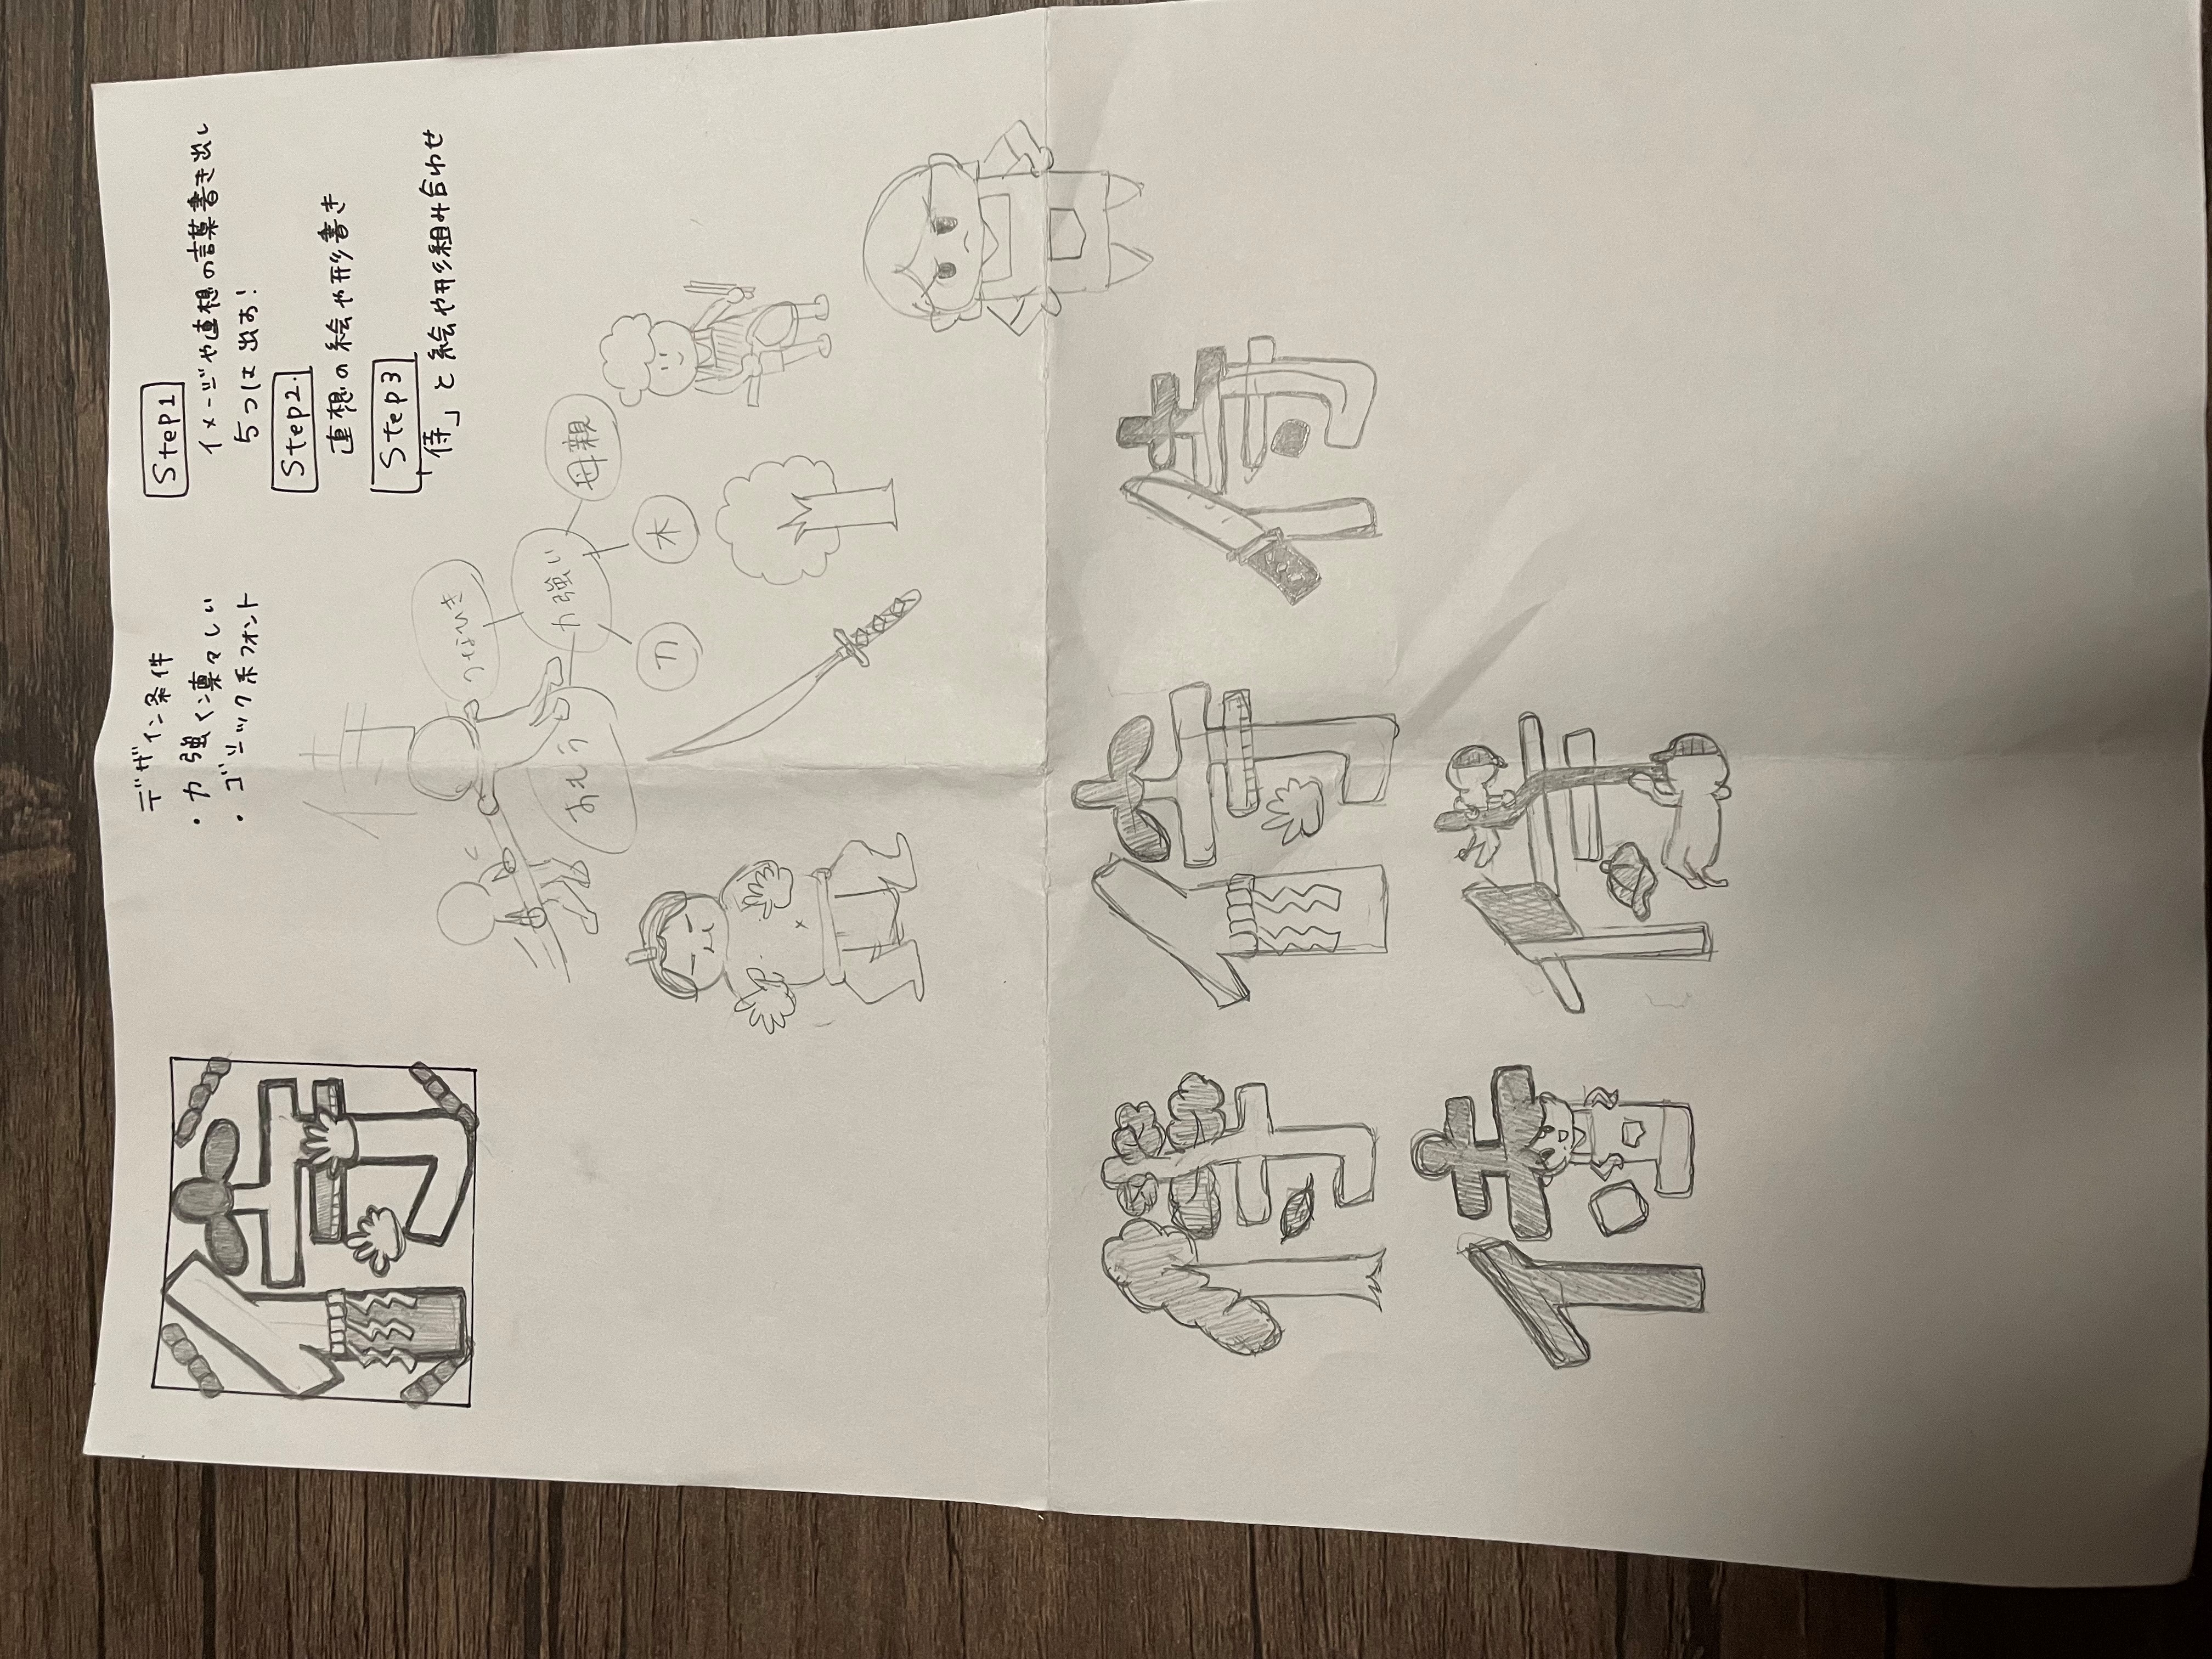 デザイン条件
・力強く凛々しい
・ゴシック系フォント
Step1
イメージや連想の言葉書き出し
5つは出す!
Step2.
連想の絵や形書き
Step3
「侍」と絵や形組み合わせ
侍
つなひき
力強い
母親
木
刀
侍
侍
侍
侍
侍